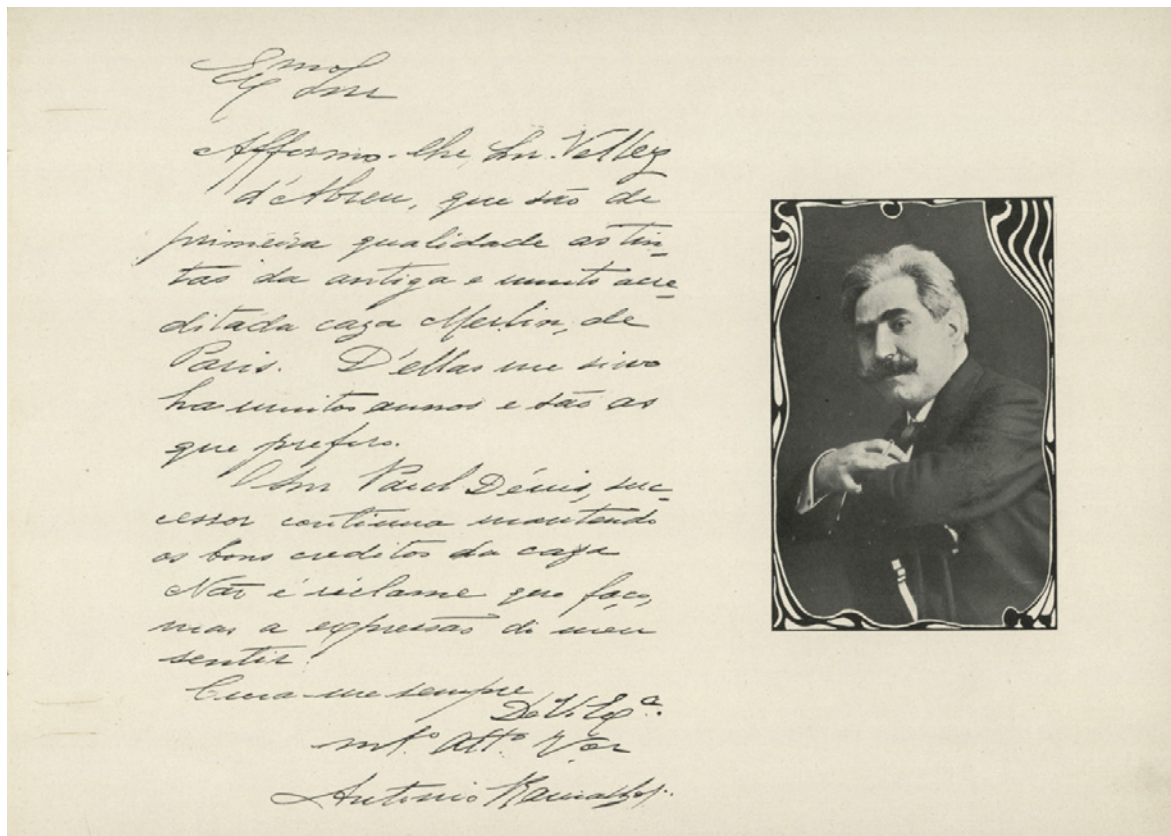 Exmo Snr
Affirmo-lhe, Snr. Vellez
d'Abreu, que são de
primeira qualidade as tin-
tas da antiga e muito acre-
ditada caza Merlin, de
Paris. D'ellas me sirvo
ha muitos annos e são as
que prefiro.
O Snr Paul Dénis, suc-
cessor continua mantendo
os bons creditos da caza
Não é réclame que faço,
mas a expressão do meu
sentir.
Creia-me sempre
De V. Exª.
mtº Attº Vor
Antonio Ramalho